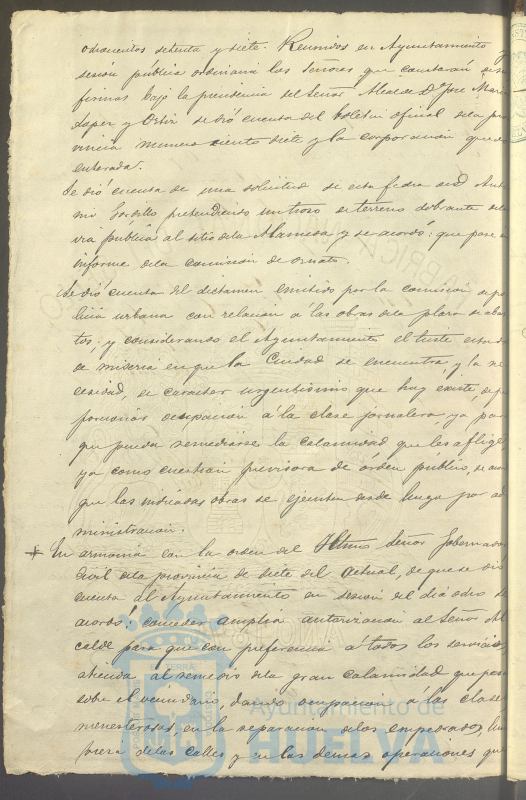 ochocientos setenta y siete. Reunidos en Ayuntamiento y
sesión pública ordinaria los Señores que constarán
firmas bajo la presidencia del Señor Alcalde Dn. José Maria
Lopez y Ortiz se dió cuenta del boletin oficial dela pro
vincia numero ciento siete y la corporacion quedó
enterada.
Se dió cuenta de una solicitud de esta fecha de Dn.
Gordillo pretendiendo un trozo de terreno sobrante dela
via pública al sitio dela Alameda y se acordó: que pase á
informe dela comision de ornato.
Se dió cuenta del dictamen emitido por la comision de po
licia urbana con relacion á las obras dela plaza de abas
tos, y considerando el Ayuntamiento el triste estado
de miseria en que la Ciudad se encuentra, y la ne
cesidad, de caracter urgentisimo que hay existe, de
proporcionar ocupacion á la clase jornalera, ya para
que pueda remediarse la calamidad que les aflige
ya como cuestion previsora de orden público, se acordó
que las indicadas obras se ejecuten desde luego por ad
ministracion.
En armonia con la orden del Iltmo Señor Gobernador
Civil dela provincia de siete del actual, de que se dió
cuenta al Ayuntamiento en sesion del dia ocho se
acordó: conceder amplia autorizacion al Señor Al
calde para que con preferencia á todos los servicios,
atienda al remedio dela gran calamidad que pesa
sobre el vecindario, dando ocupacion á las clases
menesterosas, en la reparacion delos empedrados, lim
pieza delas calles y en las demas operaciones que
Ayuntamiento de
HUELVA